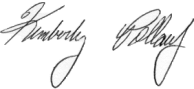 Kimberly Pollard